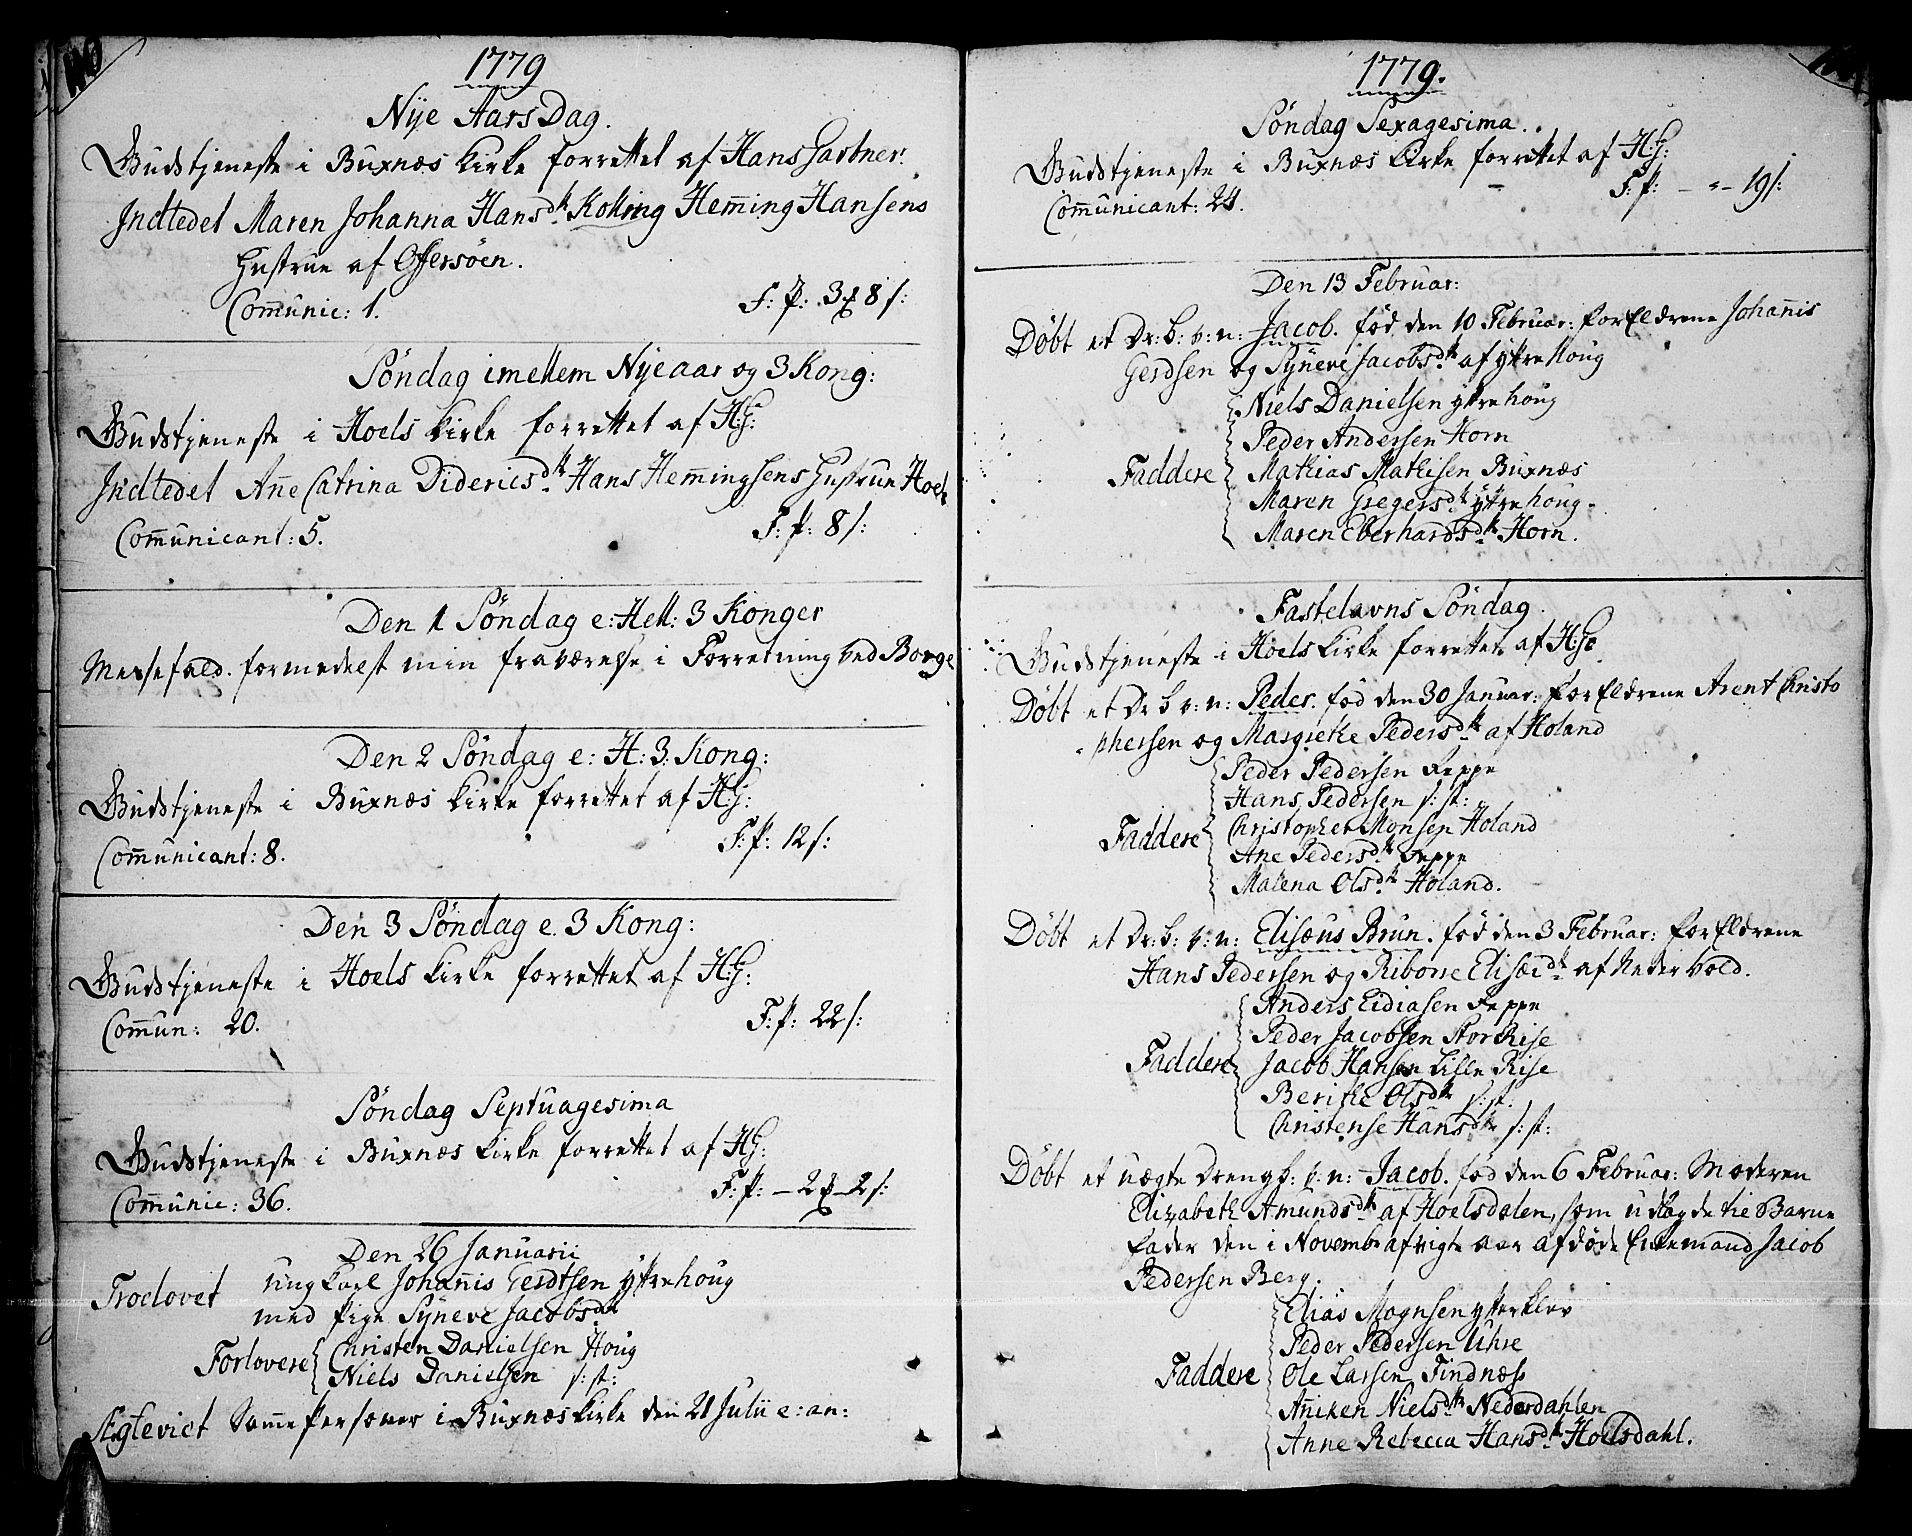 1779
Nÿe Aars Dag.
Gudstjeneste i Buxnæs kirke forrettet af Hans Gartner.
Indledet Maren Johanna Hansdtr. Kolling Hem̄ing Hansens
Hustrue af Offersöen.
Com̄unic: 1. F: P: 3 8 s:
Söndag imellem Nÿeaar og 3 Kong:
Gudstjeneste i Hoels kirke forrettet af H:G:
Indledet An̄e Catrina Didericsdtr. Hans Hem̄ingsens Hustrue Hoel
Com̄unicant: 5. F: P: 8 s:
Den 1 Söndag e: Hell: 3 Konger
Messefald. formedelst min fraværelse i Forretning ved Borge
Den 2 Söndag e: H: 3: Kong:
Gudstjeneste i Buxnæs kirke forrettet af H:G:
Com̄unicant: 8. F: P: 12 s:
Den 3 Söndag e. 3 Kong:
Gudstjeneste i Hoels kirke forrettet af H:G:
Com̄un: 20. F: P: 22 s:
Söndag Septuagesima
Gudstjeneste i Buxnæs kirke forrettet af H:G:
Com̄unic: 36. F: P: – 2 – 2 s:
Den 26 Januarii
Troelovet Ung karl Johan̄is Gerdtsen Ytrehoug
med Pige Sÿneve Jacobsdtr
Forlovere Christen Danielsen Houg
Niels Danielsen s: st:
Ægtevict Sam̄e Personer i Buxnæs kirke den 21 Julii e: an:
1779.
Söndag Sexagesima.
Gudstjeneste i Buxnæs kirke forrettet af H:G:
Com̄unicant: 24. F: P: – " – 19 s:
Den 13 Februar:
Döbt et Dr: b: v: n: Jacob. föd den 10 Februar: Forældrene Johan̄is
Gerdsen og Sÿneve Jacobsdtr. af Ytrehoug
Faddere
Niels Danielsen Ytrehoug
Peder Andersen Horn
Mathias Mathisen Buxnæs
Maren Gregersdtr. Ytrehoug.
Maren Eberhardsdtr. Horn.
Fastelavns Söndag.
Gudstjeneste i Hoels kirke forrettet af H:G:
Döbt et Dr b v: n: Peder. föd den 30 Januar: Forældrene Arent Christo
phersen og Margrethe Pedersdtr. af Holand
Faddere
Peder Pedersen Reppe
Hans Pedersen s: st:
Christopher Monsen Holand
Ane Pedersdtr. Reppe
Malena Olsdtr. Holand.
Döbt et Dr: b: v: n: Elisæus Brun. föd den 3 Februar: Forældrene
Hans Pedersen og Riborre Elisæidtr. af Nedervold.
Faddere
Anders Eidiasen Reppe
Peder Jacobsen Stor Rise
Jacob Hansen Lille Rise
Berithe Olsdtr s: st:
Christense Hansdtr s: st:
Döbt et uægte Dreng b: v: n: Jacob. föd den 6 Februar: Moderen
Elizabeth Amundsdtr af Hoelsdalen, som udlagde til Barne
fader den i Novembr afvigte aar afdöde Enkemand Jacob
Pedersen Berg.
Faddere
Elias Mognsen Ytterklev
Peder Pedersen Uhre
Ole Larsen Findnæss
An̄iken Nielsdtr. Nederdahlen
Anne Rebecca Hansdtr. Hoelsdahl.